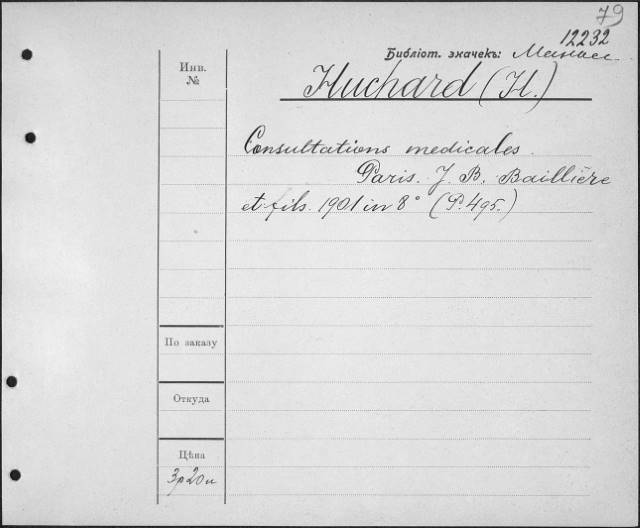 79
12232
Библіот. значекъ:
Инв.
№
Huchard (H.)
Consultations medicales.
Paris. J. B. Baillière
et fils. 1901 in 8° (P. 495.)
По заказу
Откуда
Цѣна
3р 20к